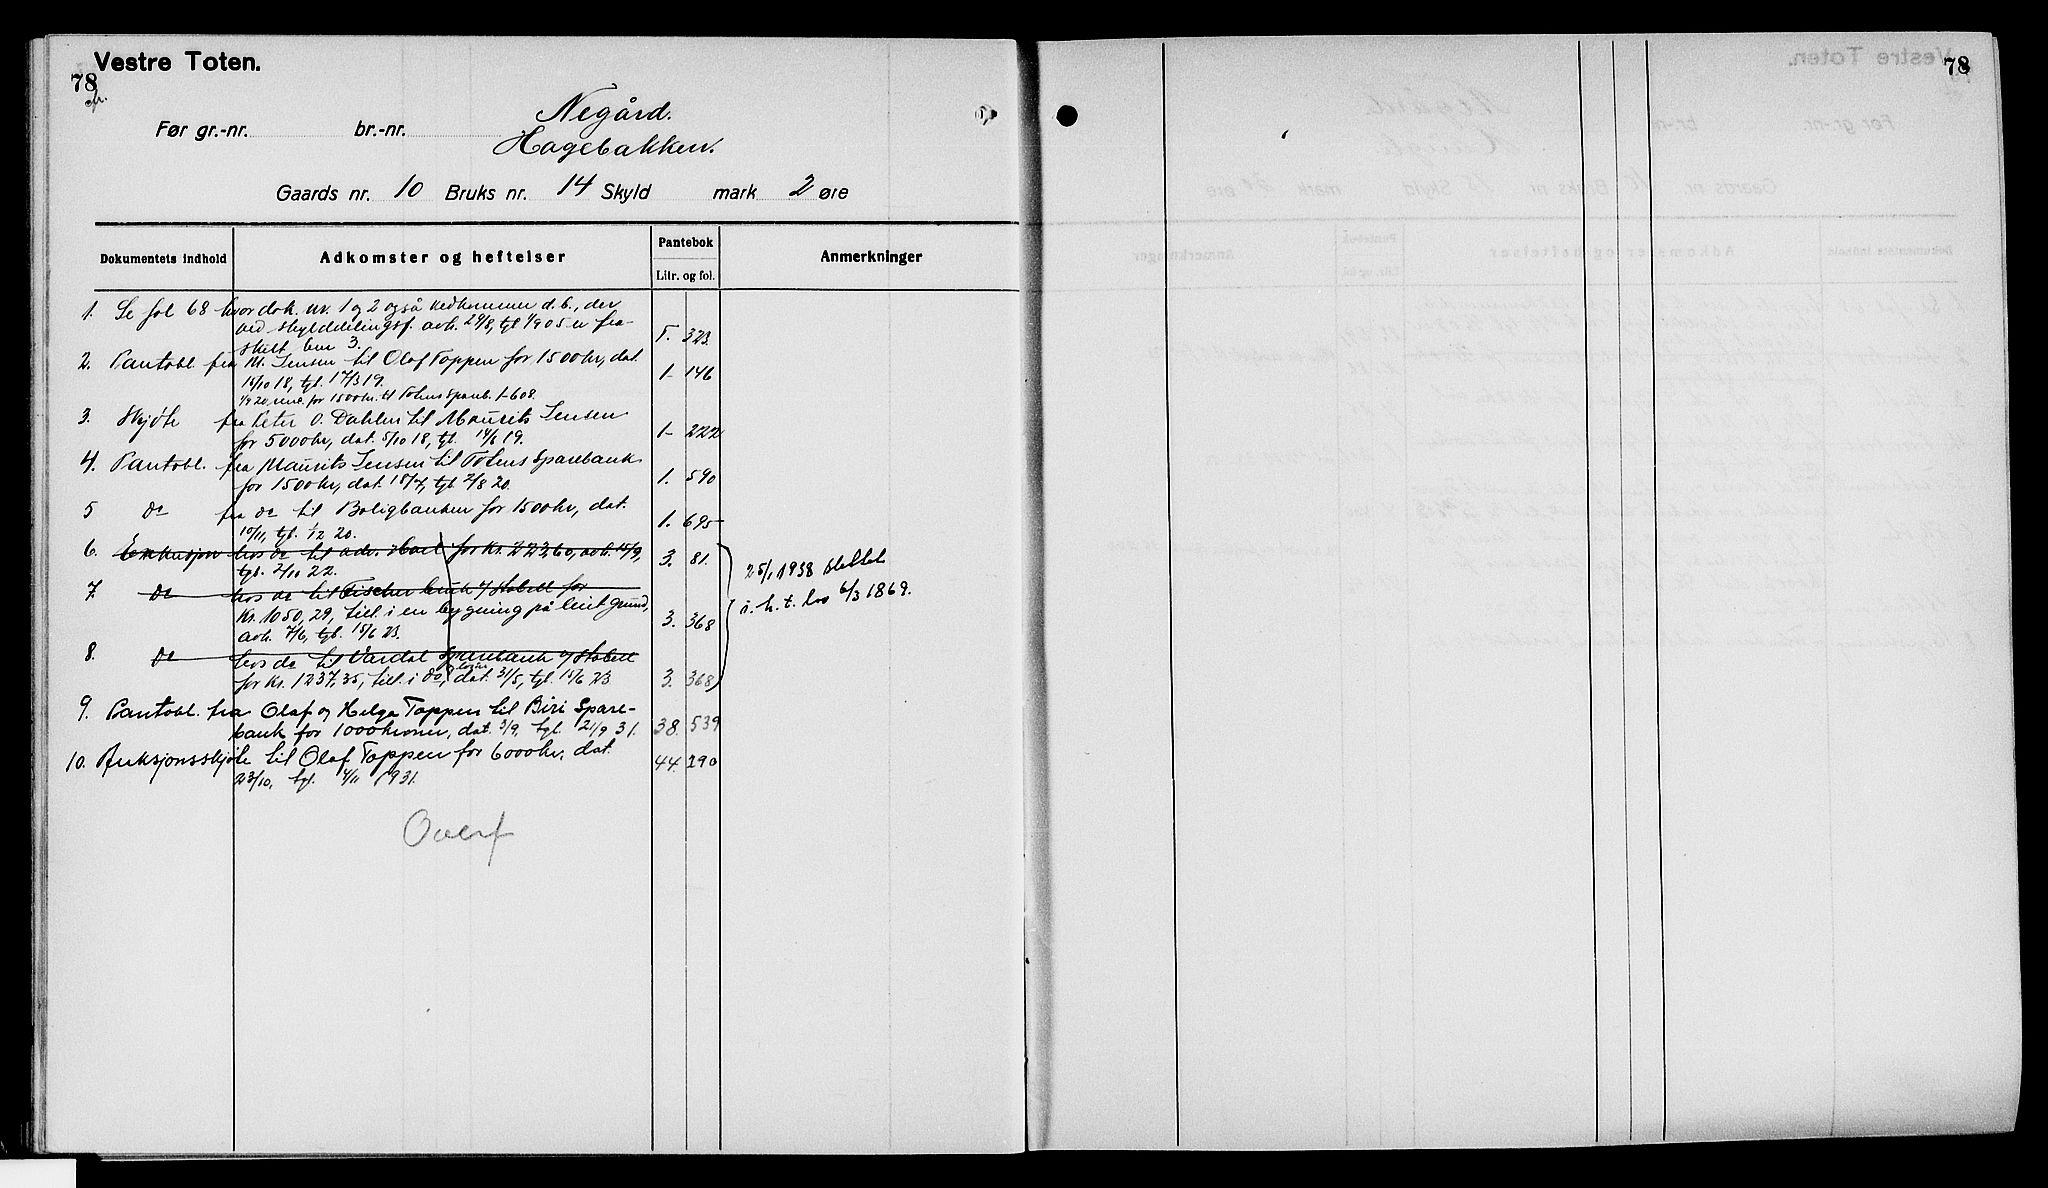 Vestre Toten.
78
Før gr.-nr. br.-nr. Negård.
Hagebakken.
Gaards nr. 10 Bruks nr. 14 Skyld mark 2 øre
Dokumentets indhold Adkomster og heftelser Pantebok Anmerkninger
Litr. og fol.
1. Se fol 68 hvor dok. nr. 1 og 2 også vedkommer d.b., der
ved skylddelingsf. avh. 29/8, tgl 1/9 05 er fra-
skilt bnr 3. 5. 323.
2. Pantobl. fra M. Jensen til Olaf Toppen for 1500 kr, dat.
15/10 18, tgl. 17/3 19. 1- 146
for 1500 kr. til Totens Spareb. 1-608.
3. Skjøte fra Peter O. Dahlen til Maurits Jensen
for 5000 kr, dat. 5/10 18, tgl. 14/6 19. 1- 222
4. Pantobl. fra Maurits Jensen til Totens Sparebank
for 1500 kr, dat. 15/7, tgl 2/8 20. 1. 590
5 do fra do til Boligbanken for 1500 kr, dat.
15/11, tgl. 1/12 20. 1. 695
6. Exekusjon hos do til adv. Hoel for kr. 223,60, avh. 15/9,
tgl. 2/11 22. 3. 81.
7. do hos do til Fischer v/ Stabell for
Kr. 1050,29, till. i en bygning på leiet grund,
avh. 7/6, tgl. 15/6 23. 3. 368
8. do hos do til Vardal Sparebank v/ Stabell
for kr. 1237,35, till. i do, dat. 31/5, tgl. 15/6 23. 3. 368
25/1 1938 slettet
i. h. t. lov 6/3 1869.
9. Pantobl. fra Olaf og Helga Toppen til Biri Spare-
bank for 1000 kroner, dat. 3/9, tgl. 21/9 31. 38. 539
10. Auksjonsskjøte til Olaf Toppen for 6000 kr, dat.
23/10, tgl. 4/11 1931. 44. 290
Overf
78